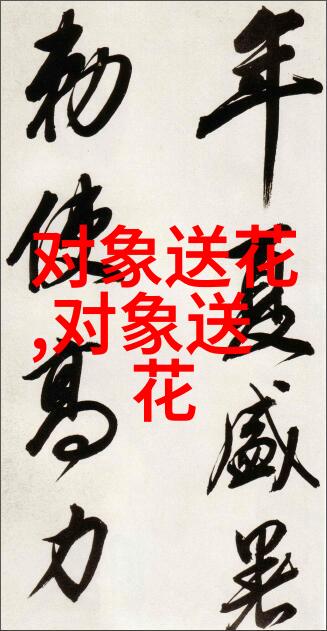 年夏盛暑
勅使高力
对象送花
,对象送
花